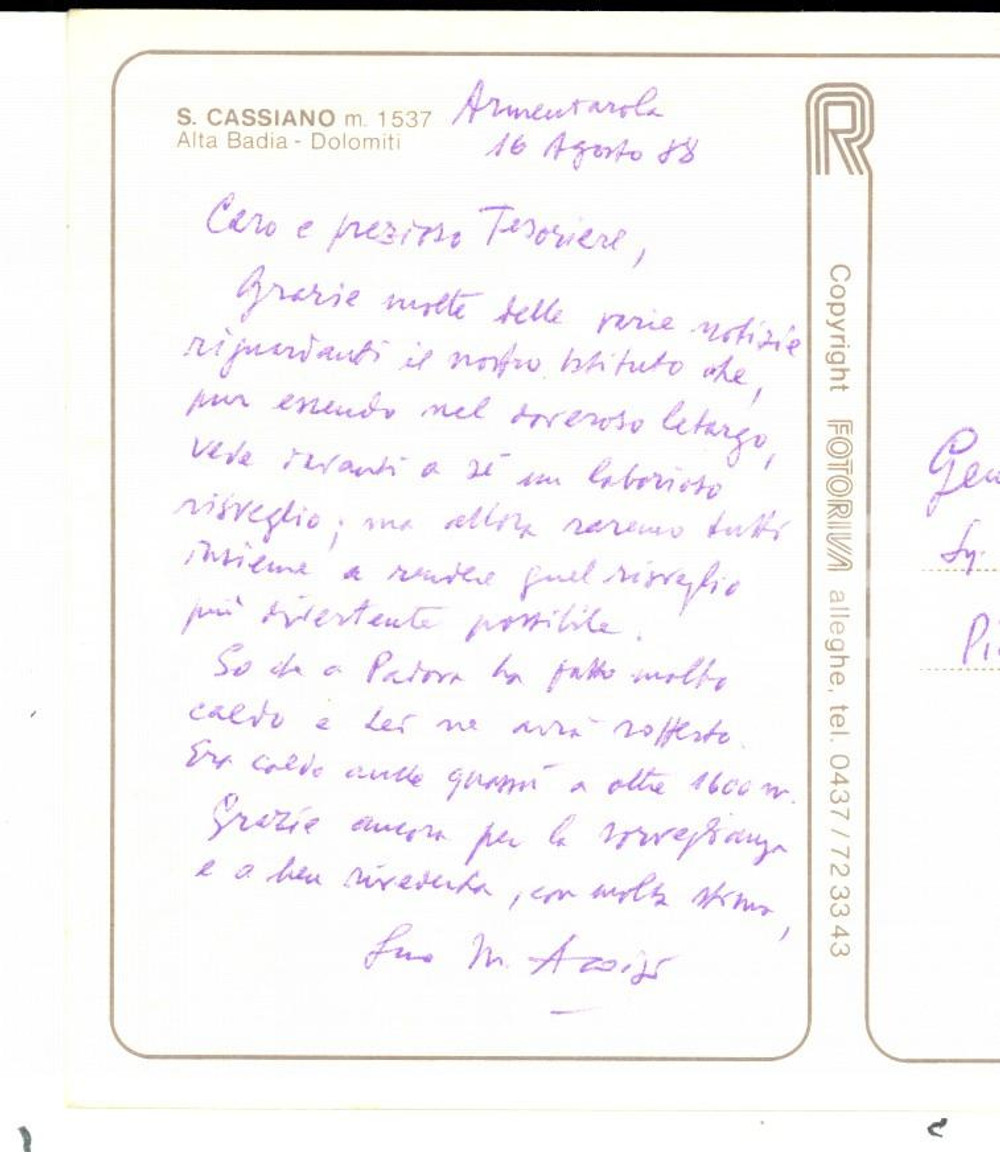 S. CASSIANO m. 1537
Alta Badia - Dolomiti
Armentarola
16 Agosto 88
Caro e prezioso Tesoriere,
Grazie molte delle varie notizie
riguardanti il nostro Istituto che,
pur essendo nel doveroso letargo,
vede davanti a sé un laborioso
risveglio; ma allora saremo tutti
insieme a rendere quel risveglio
più divertente possibile.
So che a Padova ha fatto molto
caldo e Lei ne avrà sofferto.
Era caldo anche quassù a oltre 1600 m.
Grazie ancora per la sorveglianza
e a ben rivederla, con molta stima,
Suo M.
R
Copyright FOTORIVA alleghe, tel. 0437/723343
Gen
Sg.